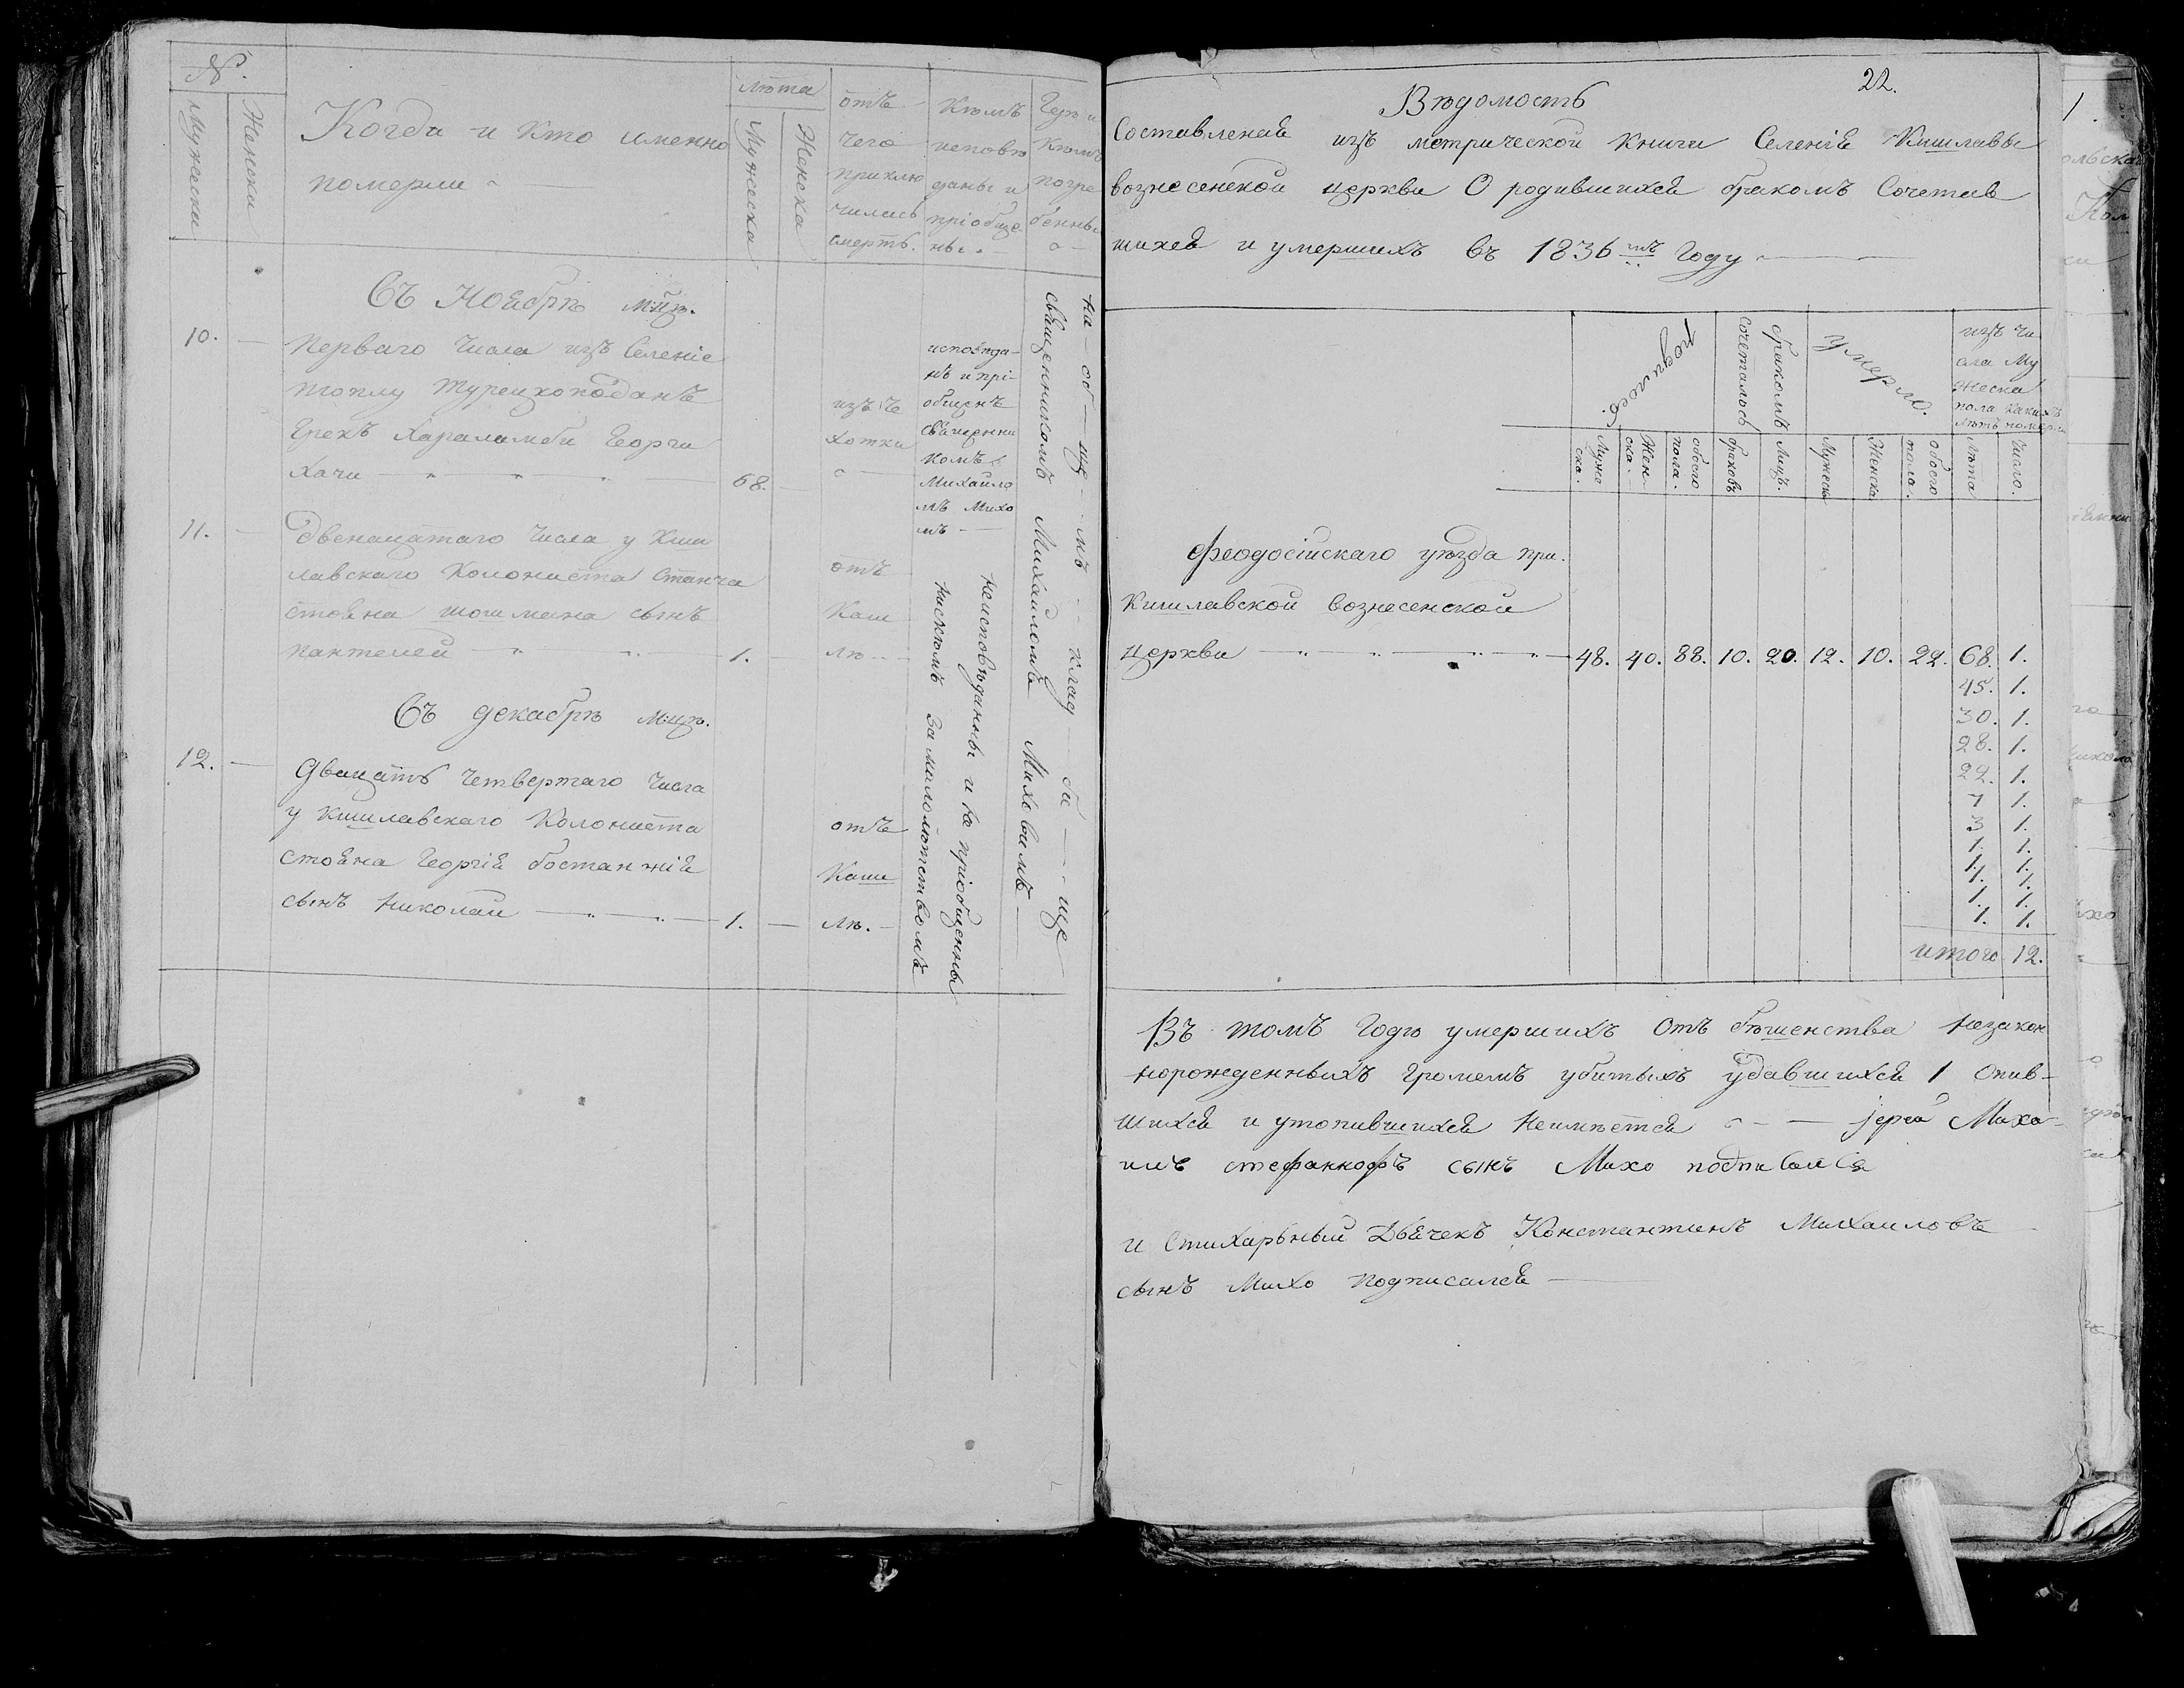 №.
Мужески
Женски
Когда и кто именно
померли
лѣта
Мужеска
Женска
отъ
чего
приклю
чилась
смерть.
Кѣмъ
исповѣ
даны и
пріобще
ны.
Гдѣ и
кѣмъ
погре
бенны
Съ Ноября мцъ.
10.
Перваго числа изъ Селеніе
топлу Турецкоподанъ
Грекъ Хараламби Георги
хачи
68.
изъ че
хотки
исповѣда
нъ и прі-
общенъ
священни
комъ
Михаило
мъ Михо
мъ
11.
Двенацатаго числа у Киш
лавскаго колониста Станча
стояна шошмана сынъ
пантелей
1.
отъ
Каш
лю
Съ декабрѣ мцъ.
12.
Двацать четвертаго числа
у Кишлавскаго Колониста
стояна Георгія бостанжія
сынъ николай
1.
отъ
Каш
лю.
неисповѣданны и не пріобщенны
нискемъ за малолѣтствомъ
на - об - ще - мъ - клад - би - ще
священникомъ Михаиломъ
22.
Вѣдомость
Составленая изъ метрической книги Селенія Кишлавы
вознесенской церкви О родившихся бракомъ Сочетав
шихся и умершихъ въ 1836мъ Году
родилось.
бракомъ
сочетались
умерло.
изъ чи
сла Му
жеска
пола какихъ
лѣтъ померли
Муже
ска.
Жен
ска.
обоего
пола.
браковъ
Лицъ.
Мужеск
Женска
обоего
пола.
Лѣта
Число.
феодосійскаго уѣзда при.
Кишлавской вознесенской
церкви 48. 40. 88. 10. 20. 12. 10. 22. 68. 1.
45. 1.
30. 1.
28. 1.
22. 1.
7 1.
3 1.
1. 1.
1. 1.
1. 1.
1. 1.
1. 1.
итого 12.
Въ томъ Годѣ умершихъ отъ бѣшенства незакон
норожденныхъ громомъ убитыхъ удавшихся 1 Опив-
шихся и утопившихся неимѣется іерей Миха
илъ стефанкофъ сынъ Михо подписался
и Стихарьный Дьячекъ Константинъ Михаиловъ
сынъ Михо подписался